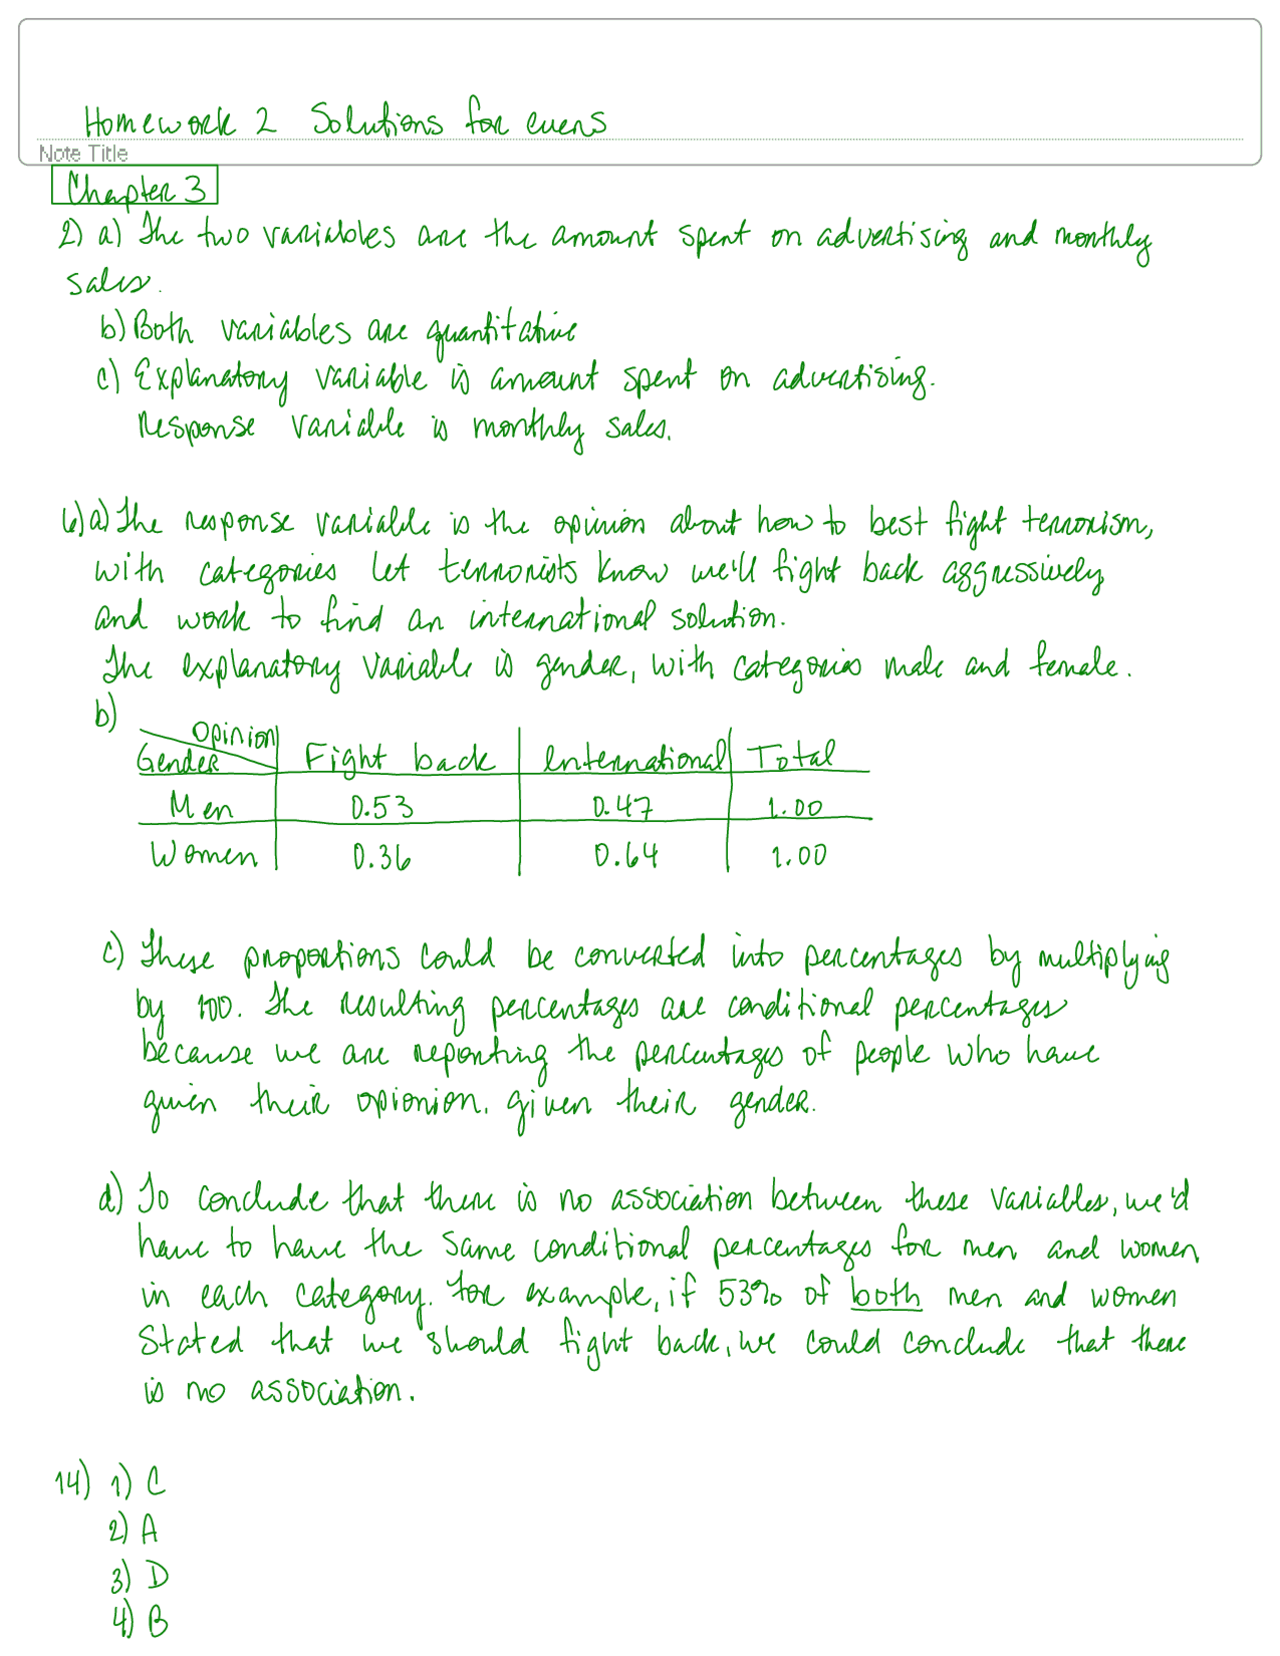 Homework 2 Solutions for evens
Note Title
Chapter 3
2) a) The two variables are the amount spent on advertising and monthly
sales.
b) Both variables are quantitative
c) Explanatory variable is amount spent on advertising.
Response variable is monthly sales.
6) a) The response variable is the opinion about how to best fight terrorism,
with categories let terrorists know we'll fight back aggressively
and work to find an international solution.
The explanatory variable is gender, with categories male and female.
b)
Opinion
Gender Fight back International Total
Men 0.53 0.47 1.00
Women 0.36 0.64 1.00
c) These proportions could be converted into percentages by multiplying
by 100. The resulting percentages are conditional percentages
because we are reporting the percentages of people who have
given their opionion, given their gender.
d) To conclude that there is no association between these variables, we'd
have to have the same conditional percentages for men and women
in each category. For example, if 53% of both men and women
stated that we should fight back, we could conclude that there
is no association.
14) 1) C
2) A
3) D
4) B